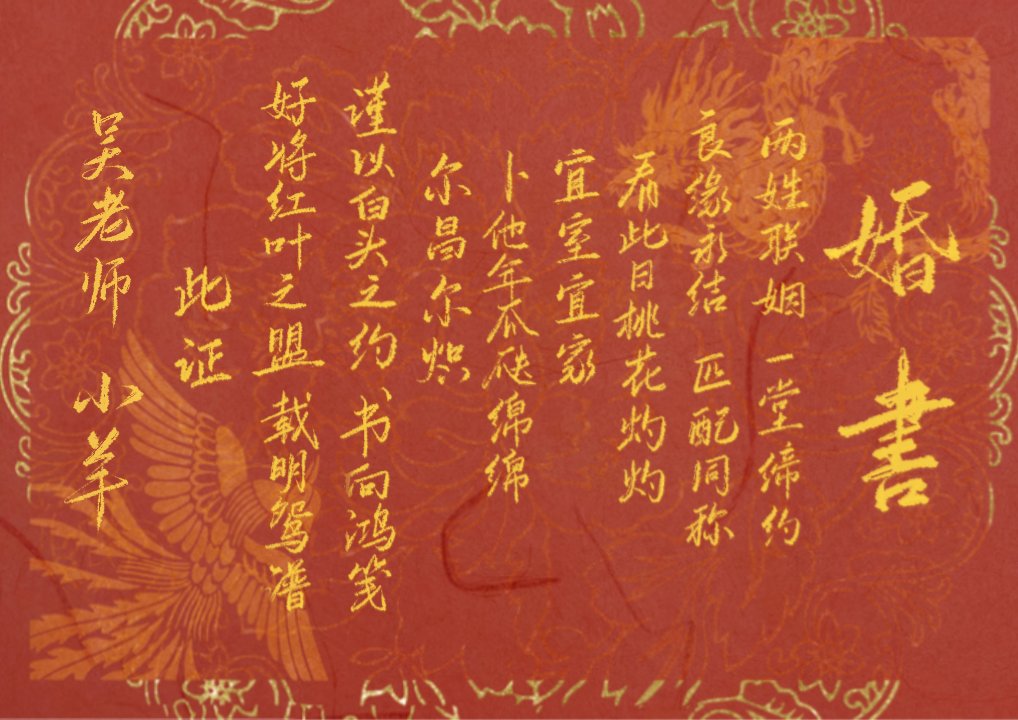 婚書
两姓联姻 一堂缔约
良缘永结 匹配同称
看此日桃花灼灼
宜室宜家
卜他年瓜瓞绵绵
尔昌尔炽
谨以白头之约 书向鸿笺
好将红叶之盟 载明鸳谱
此证
吴老师 小羊